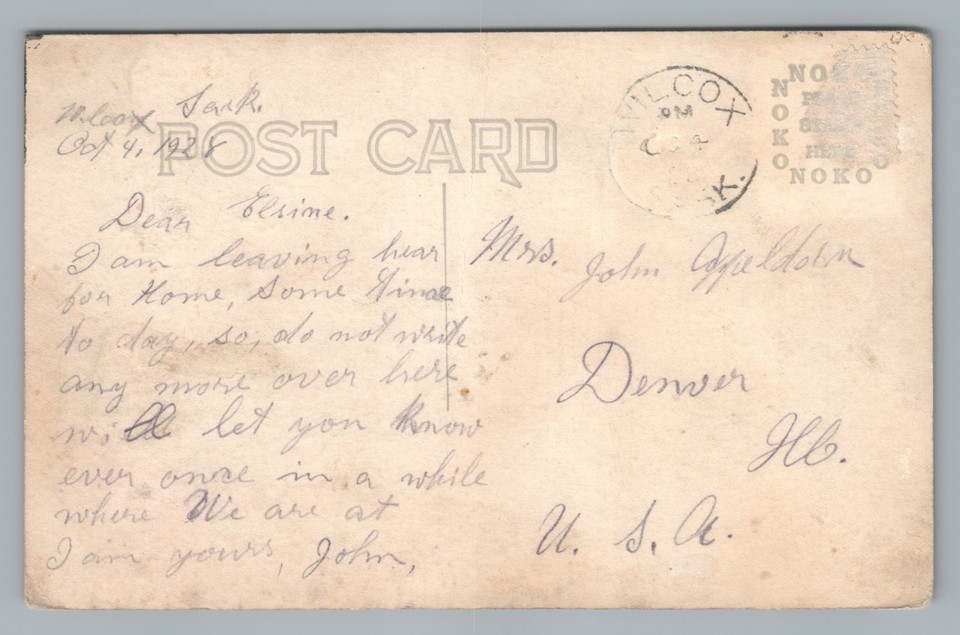 Wilcox Sask.
Oct 4, 1928
POST CARD
WILCOX
PM
OC 4
SK.
NOKO
NOKO
NOKO
HERE
NOKO
Dear Elsine.
I am leaving hear
for Home, some time
to day, so, do not write
any more over here
will let you know
ever once in a while
where We are at
I am yours, John,
Mrs. John Appeldorn
Denver
Ill.
U. S. A.